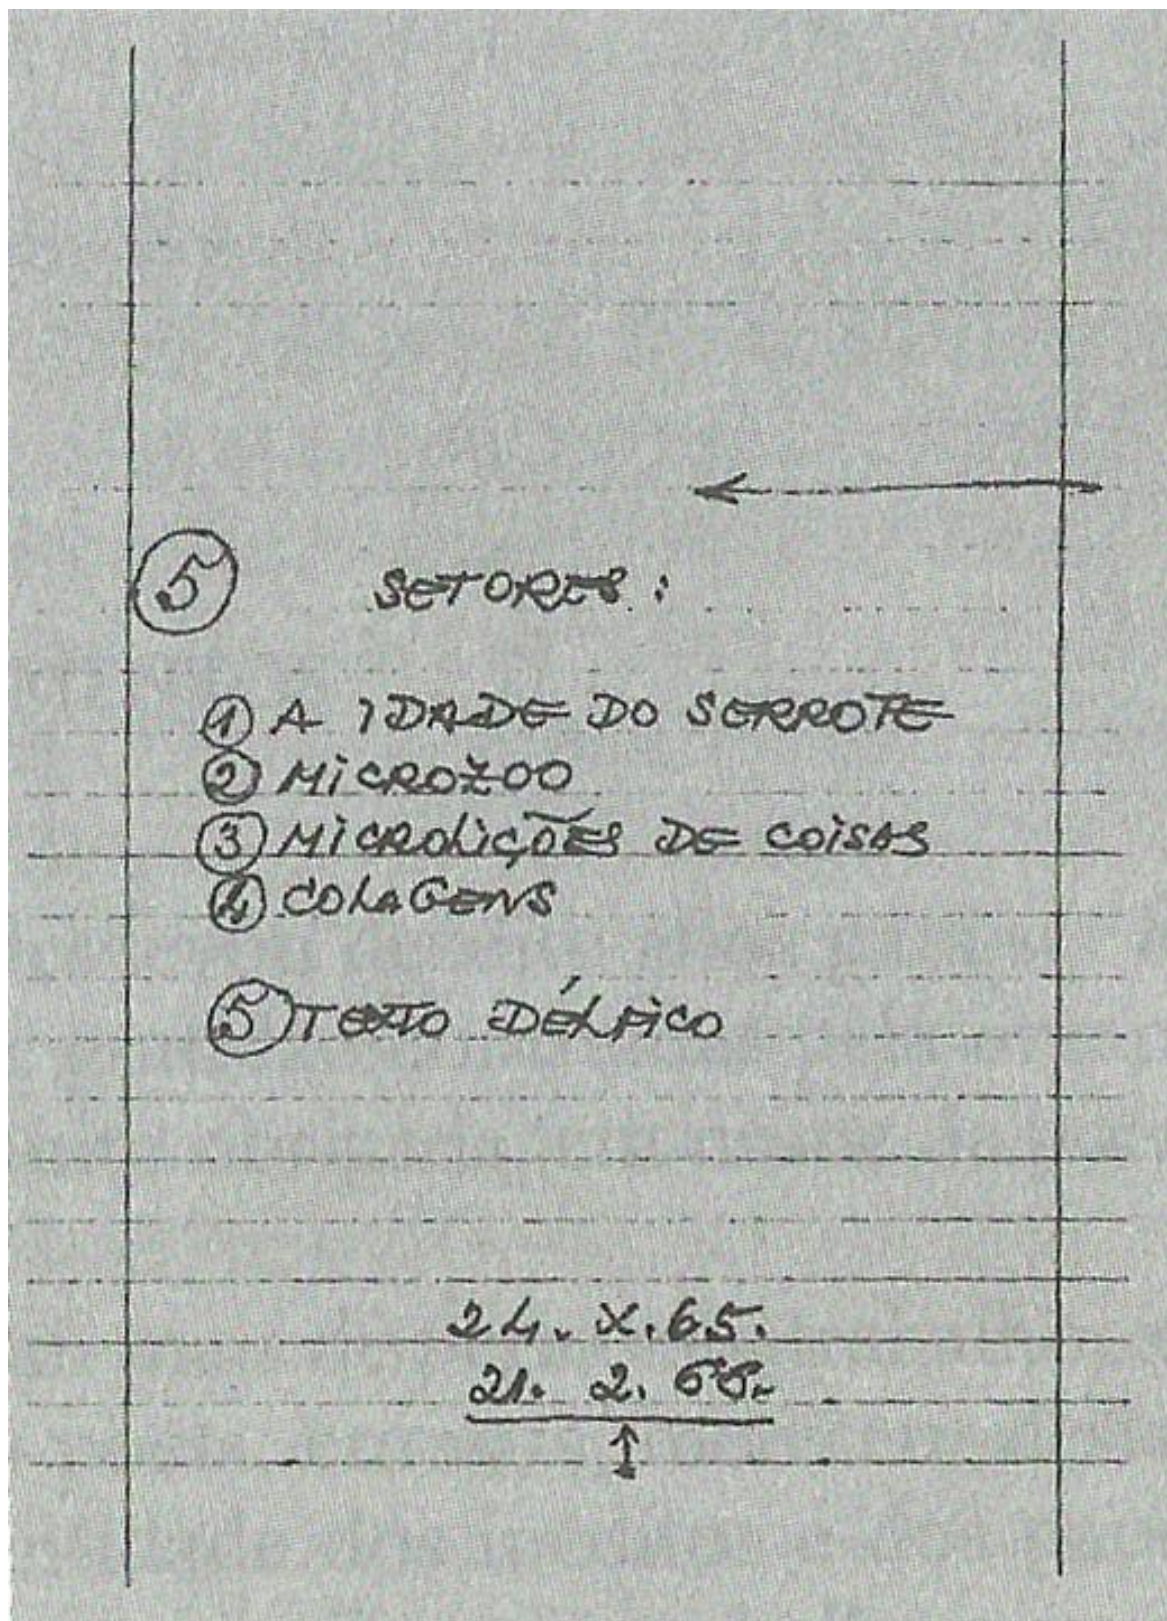 ⑤ SETORES:
① A IDADE DO SERROTE
② MICROZOO
③ MICROLIÇÕES DE COISAS
④ COLAGENS
⑤ TEXTO DÉLFICO
24. X. 65.
21. 2. 66.